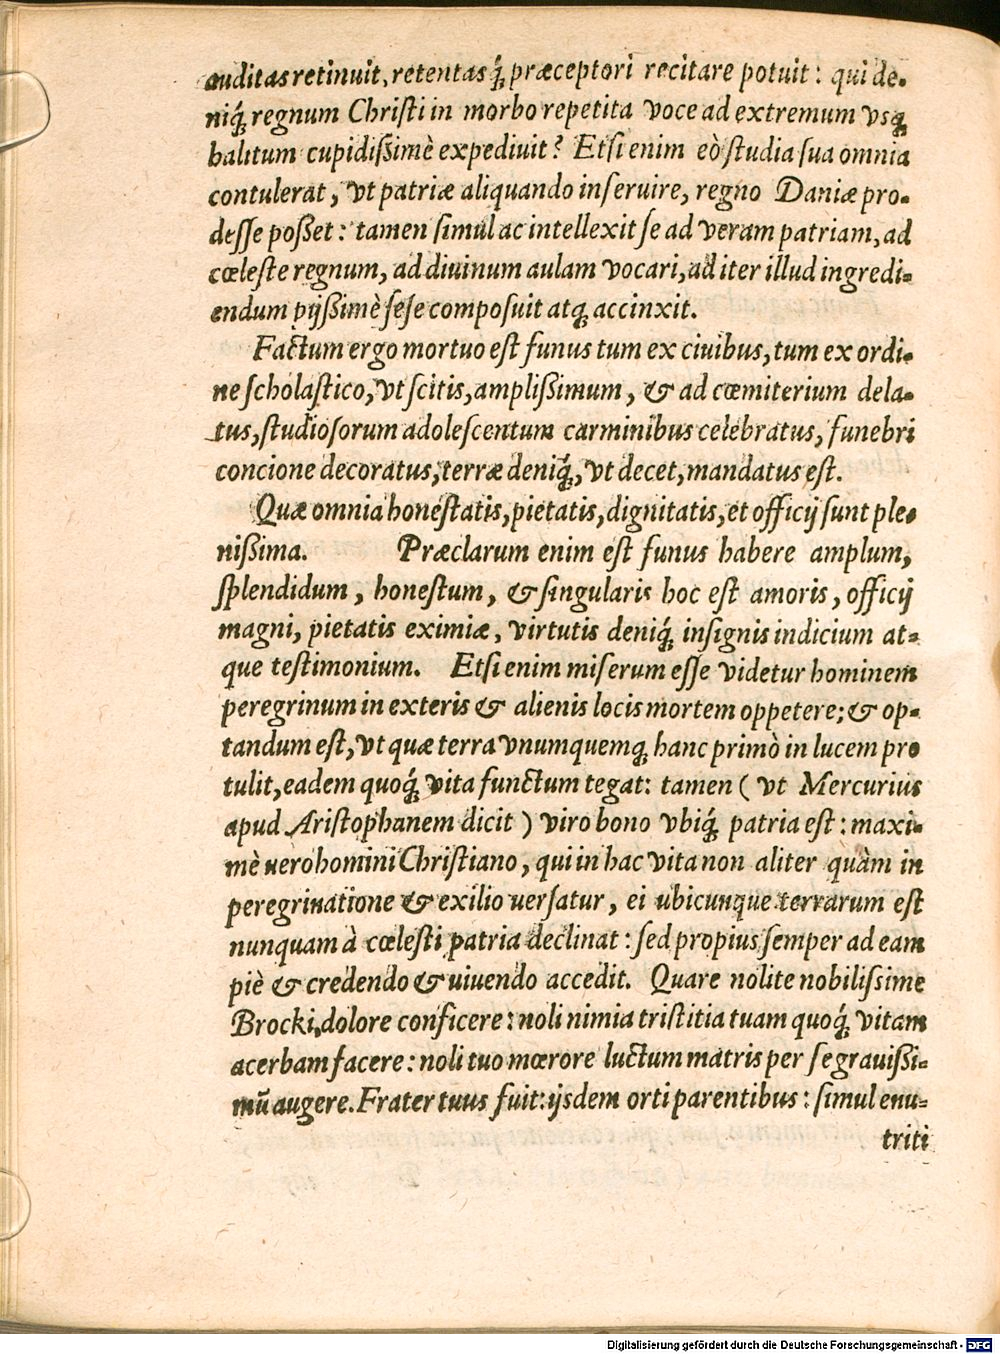 auditas retinuit, retentas q́; præceptori recitare potuit: qui de-
niq́; regnum Christi in morbo repetita voce ad extremum vsq;
halitum cupidißimè expediuit? Etsi enim eò studia sua omnia
contulerat, vt patriæ aliquando inseruire, regno Daniæ pro-
desse poßet: tamen simul ac intellexit se ad veram patriam, ad
cœleste regnum, ad diuinum aulam vocari, ad iter illud ingredi-
endum pijßimè sese composuit atq; accinxit.
Factum ergo mortuo est funus tum ex ciuibus, tum ex ordi-
ne scholastico, vt scitis, amplißimum, & ad cœmiterium dela-
tus, studiosorum adolescentum carminibus celebratus, funebri
concione decoratus, terræ deniq́;, vt decet, mandatus est.
Quæ omnia honestatis, pietatis, dignitatis, et officij sunt ple-
nißima. Præclarum enim est funus habere amplum,
splendidum, honestum, & singularis hoc est amoris, officij
magni, pietatis eximiæ, virtutis deniq́; insignis indicium at-
que testimonium. Etsi enim miserum esse videtur hominem
peregrinum in exteris & alienis locis mortem oppetere; & op-
tandum est, vt quæ terra vnumquemq; hanc primò in lucem pro
tulit, eadem quoq́; vita functum tegat: tamen ( vt Mercurius
apud Aristophanem dicit ) viro bono vbiq́; patria est: maxi-
mè uero homini Christiano, qui in hac vita non aliter quàm in
peregrinatione & exilio uersatur, ei ubicunque terrarum est
nunquam à cœlesti patria declinat: sed propius semper ad eam
piè & credendo & uiuendo accedit. Quare nolite nobilissime
Brocki, dolore conficere: noli nimia tristitia tuam quoq́; vitam
acerbam facere: noli tuo mœrore luctum matris per se grauißi-
mũ augere. Frater tuus fuit: ijsdem orti parentibus: simul enu-
triti
Digitalisierung gefördert durch die Deutsche Forschungsgemeinschaft - DFG